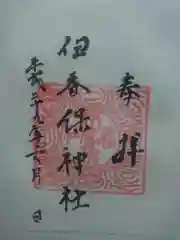 奉拝
伊香保神社
平成二十九年十一月 日